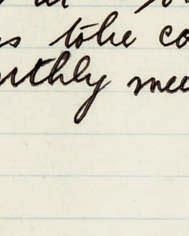 s to be co
nthly mee